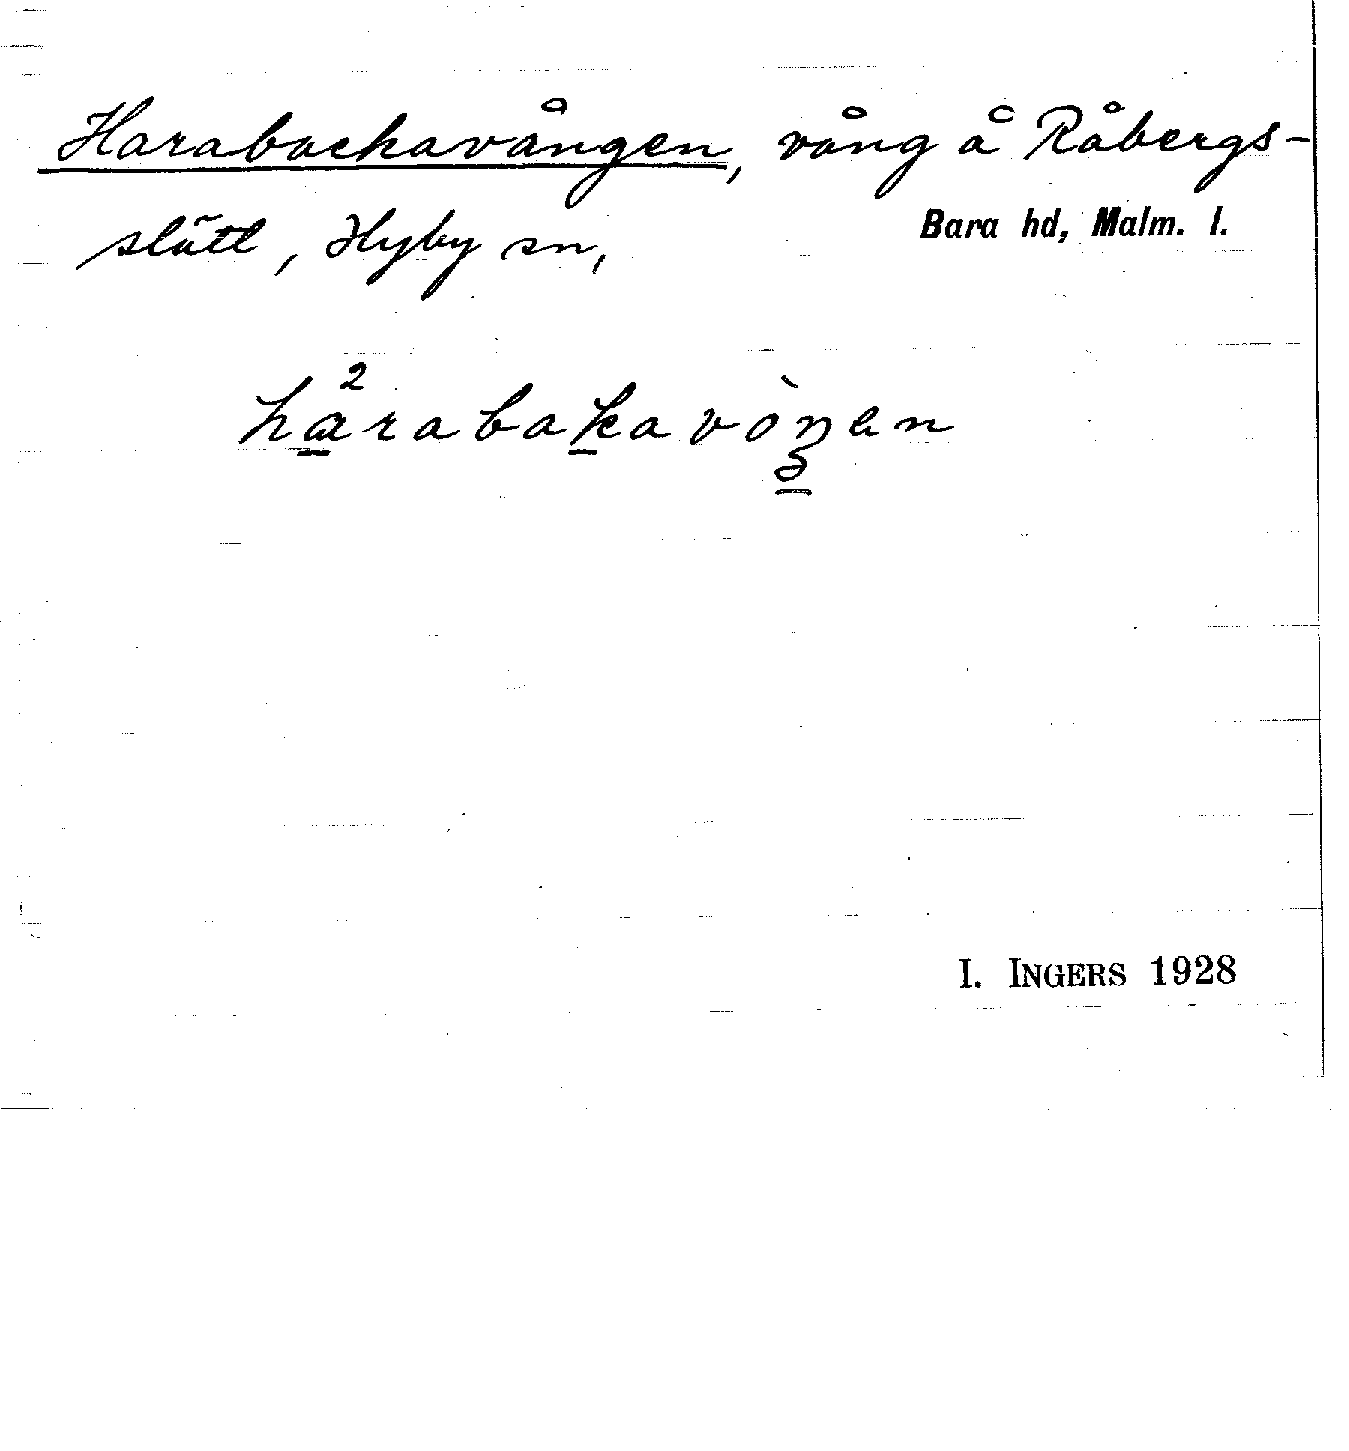 Harabackavången, vång å Råbergs-
slätt, Hyby sn,
Bara hd, Malm. l.
I. INGERS 1928